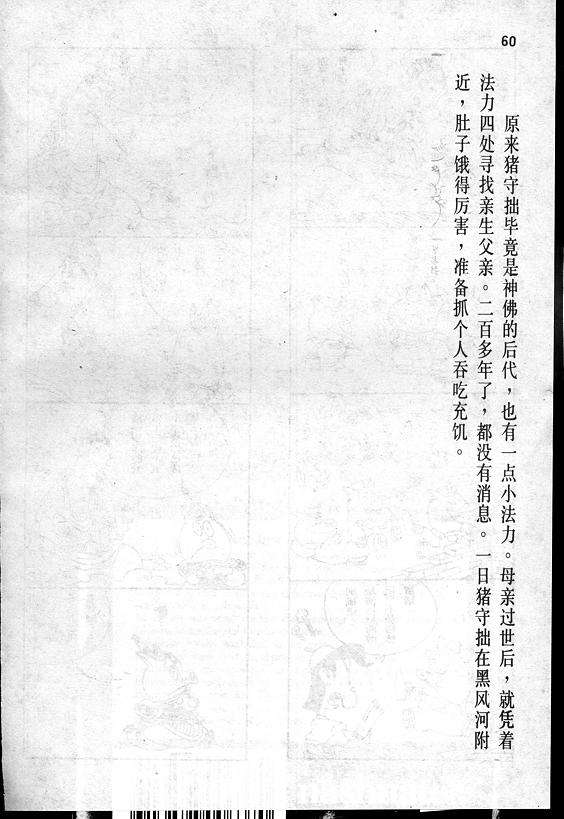 60
原来猪守拙毕竟是神佛的后代，也有一点小法力。母亲过世后，就凭着
法力四处寻找亲生父亲。二百多年了，都没有消息。一日猪守拙在黑风河附
近，肚子饿得厉害，准备抓个人吞吃充饥。